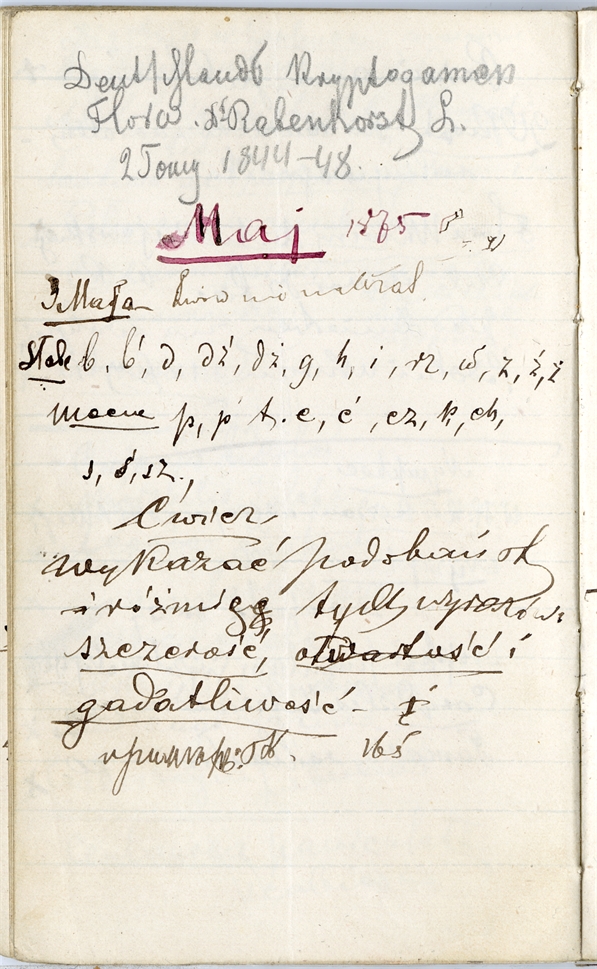 Deutschlands Kryptogamen
Flora. Dr Rabenhorst L.
2 Tomy 1844-48.
Maj 1875
3 Maja
Słabe b, b', d, dź, dż, g, h, i, rz, w, z, ź, ż
Mocne p, p' t. c, ć, cz, k, ch,
s, ś, sz.,
Ćwicz.
wykazać podobieńst
i różnicę tych wyrazów
szczerość, otwartość i
gadatliwość - i